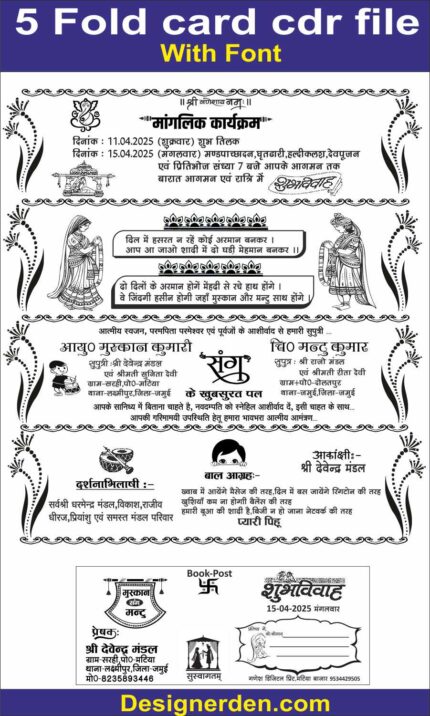 5 Fold card cdr file
With Font
॥ श्री गणेशाय नमः ॥
मांगलिक कार्यक्रम
दिनांक : 11.04.2025 (शुक्रवार) शुभ तिलक
दिनांक : 15.04.2025 (मंगलवार) मण्डपाच्छादन,घृतढारी,हल्दीकलश,देवपूजन
एवं प्रितिभोज संध्या 7 बजे आपके आगमन तक
बारात आगमन एवं रात्रि में शुभविवाह
दिल में हसरत न रहें कोई अरमान बनकर ।
आप आ जाओ शादी में दो घड़ी मेहमान बनकर ।।
दो दिलों के अरमान होगें मेंहदी से रचे हाथ होंगे ।
वे जिंदगी हसीन होगी जहाँ मुस्कान और मन्टु साथ होंगे ।
आत्मीय स्वजन, परमपिता परमेश्वर एवं पूर्वजों के आशीर्वाद से हमारी सुपुत्री ...
आयु0 मुस्कान कुमारी
सुपुत्री :श्री देवेन्द्र मंडल
एवं श्रीमती सुनिता देवी
ग्राम-सरही,पो0-मटिया
थाना-लक्ष्मीपुर,जिला-जमुई
संग
के खुबसुरत पल
चि0 मन्टु कुमार
सुपुत्र : श्री राजो मंडल
एवं श्रीमती रीता देवी
ग्राम+पो0-दौलतपुर
थाना-जमुई,जिला-जमुई
आपके सानिध्य में बिताना चाहते है, नवदम्पति को स्नेहिल आशीर्वाद दें, इसी चाहत के साथ...
आपकी गरिमामयी उपस्थिति हेतू हमारा भावभरा आत्मीय आमंत्रण...
दर्शनाभिलाषी :-
सर्वश्री धरमेन्द्र मंडल,विकाश,राजीव
धीरज,प्रियांशु एवं समस्त मंडल परिवार
बाल आग्रह:-
आकांक्षी:-
श्री देवेन्द्र मंडल
ख्वाब में आयेंगे मैसेज की तरह,दिल में बस जायेंगे रिंगटोन की तरह
खुशियाँ कम ना होगी बैलेंस की तरह
हमारी बुआ की शादी है,बिजी न हो जाना नेटवर्क की तरह
प्यारी पिहू
मुस्कान
संग
मन्टु
प्रेषक:
श्री देवेन्द्र मंडल
ग्राम-सरही,पो0-मटिया
थाना-लक्ष्मीपुर,जिला-जमुई
मो0-8235893446
Book-Post
सुस्वागतम्
शुभविवाह
15-04-2025 मंगलवार
गणेश डिजिटल प्रिंट,मटिया बाजार 9534429505
Designerden.com